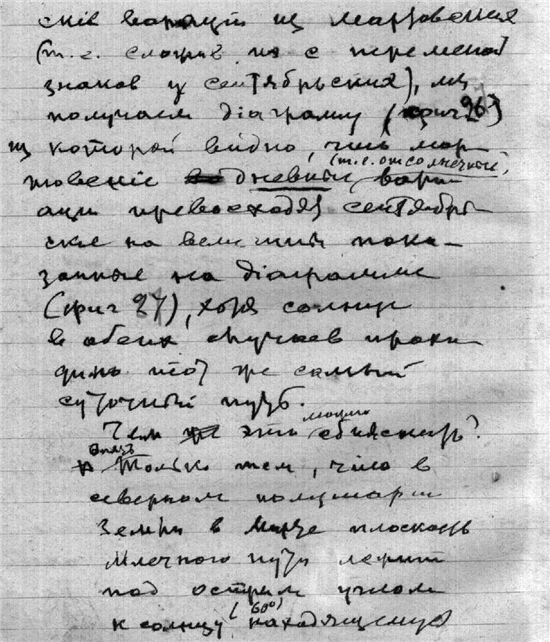 ских вариацій из мартовских
(т.е. сложив их с переменой
знаков у сентябрьских), мы
получаем діаграмму (фиг 26)
из которой видно, что мар
(т.е. отсолнечныя)
товскіе дневныя вари
аціи превосходят сентябрь
ские на величины пока-
занные на діаграмме
(фиг 27), хотя солнце
в обеих случаев прохо
дило тот же самый
суточный путь.
Чем это можно объяснить?
Опять
Только тем, что в
северном полушарии
Земли в Марте плоскость
Млечного пути лежит
под острым углом
к солнцу (60°) находящемуся